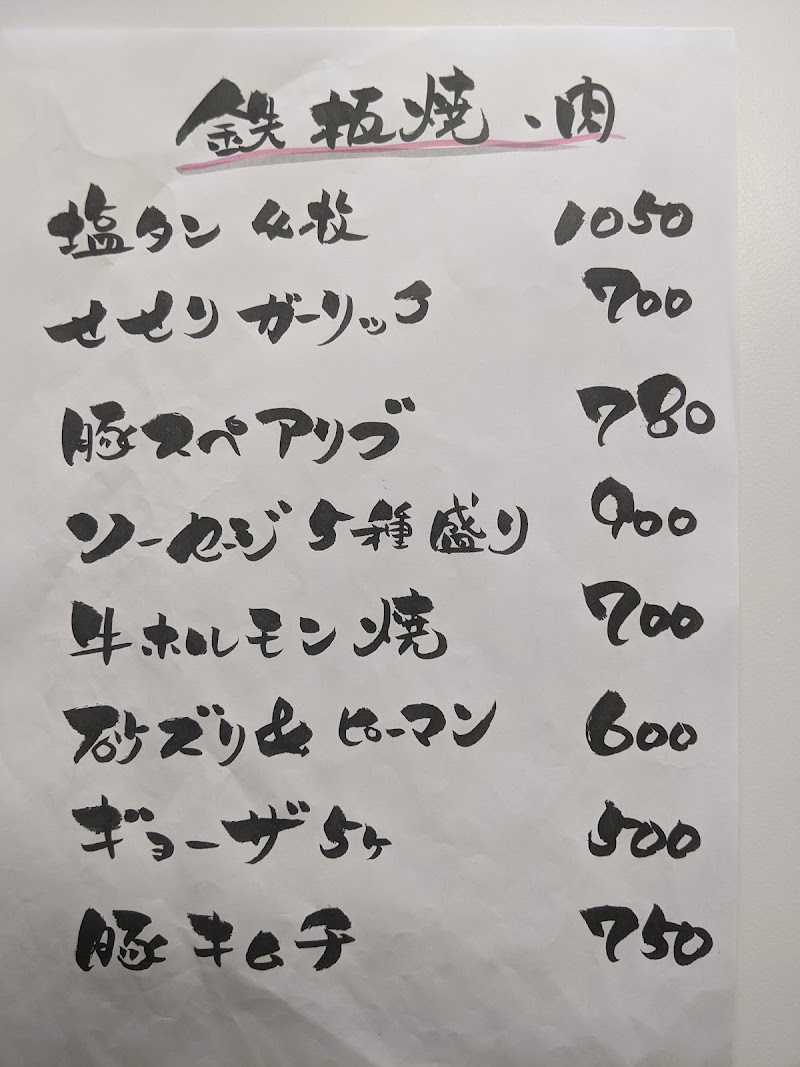 鉄板焼、肉
塩タン 4枚 1050
せせりガーリック 700
豚スペアリブ 780
ソーセージ 5種盛り 900
牛ホルモン焼 700
砂ズリ&ピーマン 600
ギョーザ 5ヶ 500
豚キムチ 750